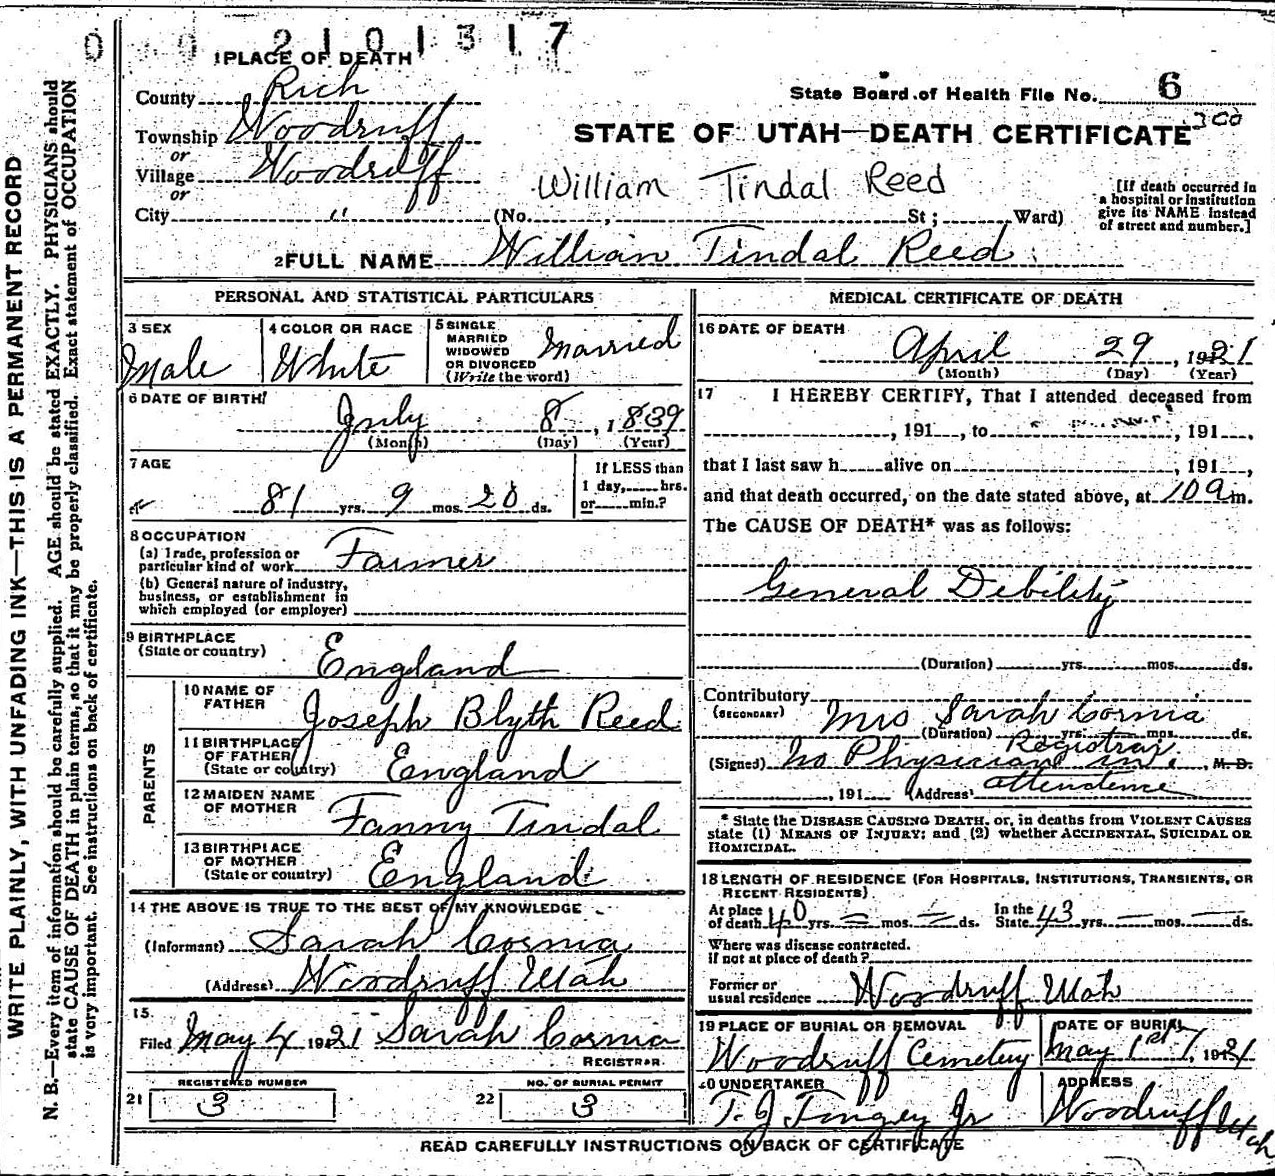 2101317
1 PLACE OF DEATH
County Rich
Township Woodruff
or
Village Woodruff
or
City "
State Board of Health File No. 6
300
STATE OF UTAH—DEATH CERTIFICATE
William Tindal Reed
(No. , St ; Ward)
[If death occurred in
a hospital or institution
give its NAME instead
of street and number.]
2 FULL NAME William Tindal Reed
PERSONAL AND STATISTICAL PARTICULARS
3 SEX
Male
4 COLOR OR RACE
White
5 SINGLE
MARRIED
WIDOWED
OR DIVORCED
(Write the word)
Married
6 DATE OF BIRTH
July 8, 1839
(Month) (Day) (Year)
7 AGE
81 yrs. 9 mos. 20 ds.
If LESS than
1 day, hrs.
or min.?
8 OCCUPATION
(a) Trade, profession or
particular kind of work Farmer
(b) General nature of industry,
business, or establishment in
which employed (or employer)
9 BIRTHPLACE
(State or country)
England
PARENTS
10 NAME OF
FATHER
Joseph Blyth Reed
11 BIRTHPLACE
OF FATHER
(State or country)
England
12 MAIDEN NAME
OF MOTHER
Fanny Tindal
13 BIRTHPLACE
OF MOTHER
(State or country)
England
14 THE ABOVE IS TRUE TO THE BEST OF MY KNOWLEDGE
(Informant) Sarah Cornia
(Address) Woodruff Utah
15
Filed May 4 1921 Sarah Cornia
REGISTRAR
REGISTERED NUMBER
21 3
NO. OF BURIAL PERMIT
22 3
MEDICAL CERTIFICATE OF DEATH
16 DATE OF DEATH
April 29, 1921
(Month) (Day) (Year)
17 I HEREBY CERTIFY, That I attended deceased from
, 191 , to , 191 ,
that I last saw h alive on , 191 ,
and that death occurred, on the date stated above, at 10 a m.
The CAUSE OF DEATH* was as follows:
General Debility
(Duration) yrs. mos. ds.
Contributory
(SECONDARY) Mrs Sarah Cornia
(Duration) yrs. mos. ds.
Registrar
(Signed) No Physician in , M. D.
, 191 (Address) attendence
* State the DISEASE CAUSING DEATH, or, in deaths from VIOLENT CAUSES
state (1) MEANS OF INJURY; and (2) whether ACCIDENTAL, SUICIDAL OR
HOMICIDAL.
18 LENGTH OF RESIDENCE (FOR HOSPITALS, INSTITUTIONS, TRANSIENTS, OR
RECENT RESIDENTS)
At place
of death 40 yrs. — mos. — ds.
In the
State 43 yrs. — mos. — ds.
Where was disease contracted.
if not at place of death?
Former or
usual residence Woodruff Utah
19 PLACE OF BURIAL OR REMOVAL
Woodruff Cemetery
DATE OF BURIAL
May 1st, 1921
20 UNDERTAKER
T. J. Tingey Jr
ADDRESS
Woodruff Utah
READ CAREFULLY INSTRUCTIONS ON BACK OF CERTIFICATE
WRITE PLAINLY, WITH UNFADING INK—THIS IS A PERMANENT RECORD
N. B.—Every item of information should be carefully supplied. AGE should be stated EXACTLY. PHYSICIANS should
state CAUSE OF DEATH in plain terms, so that it may be properly classified. Exact statement of OCCUPATION
is very important. See instructions on back of certificate.